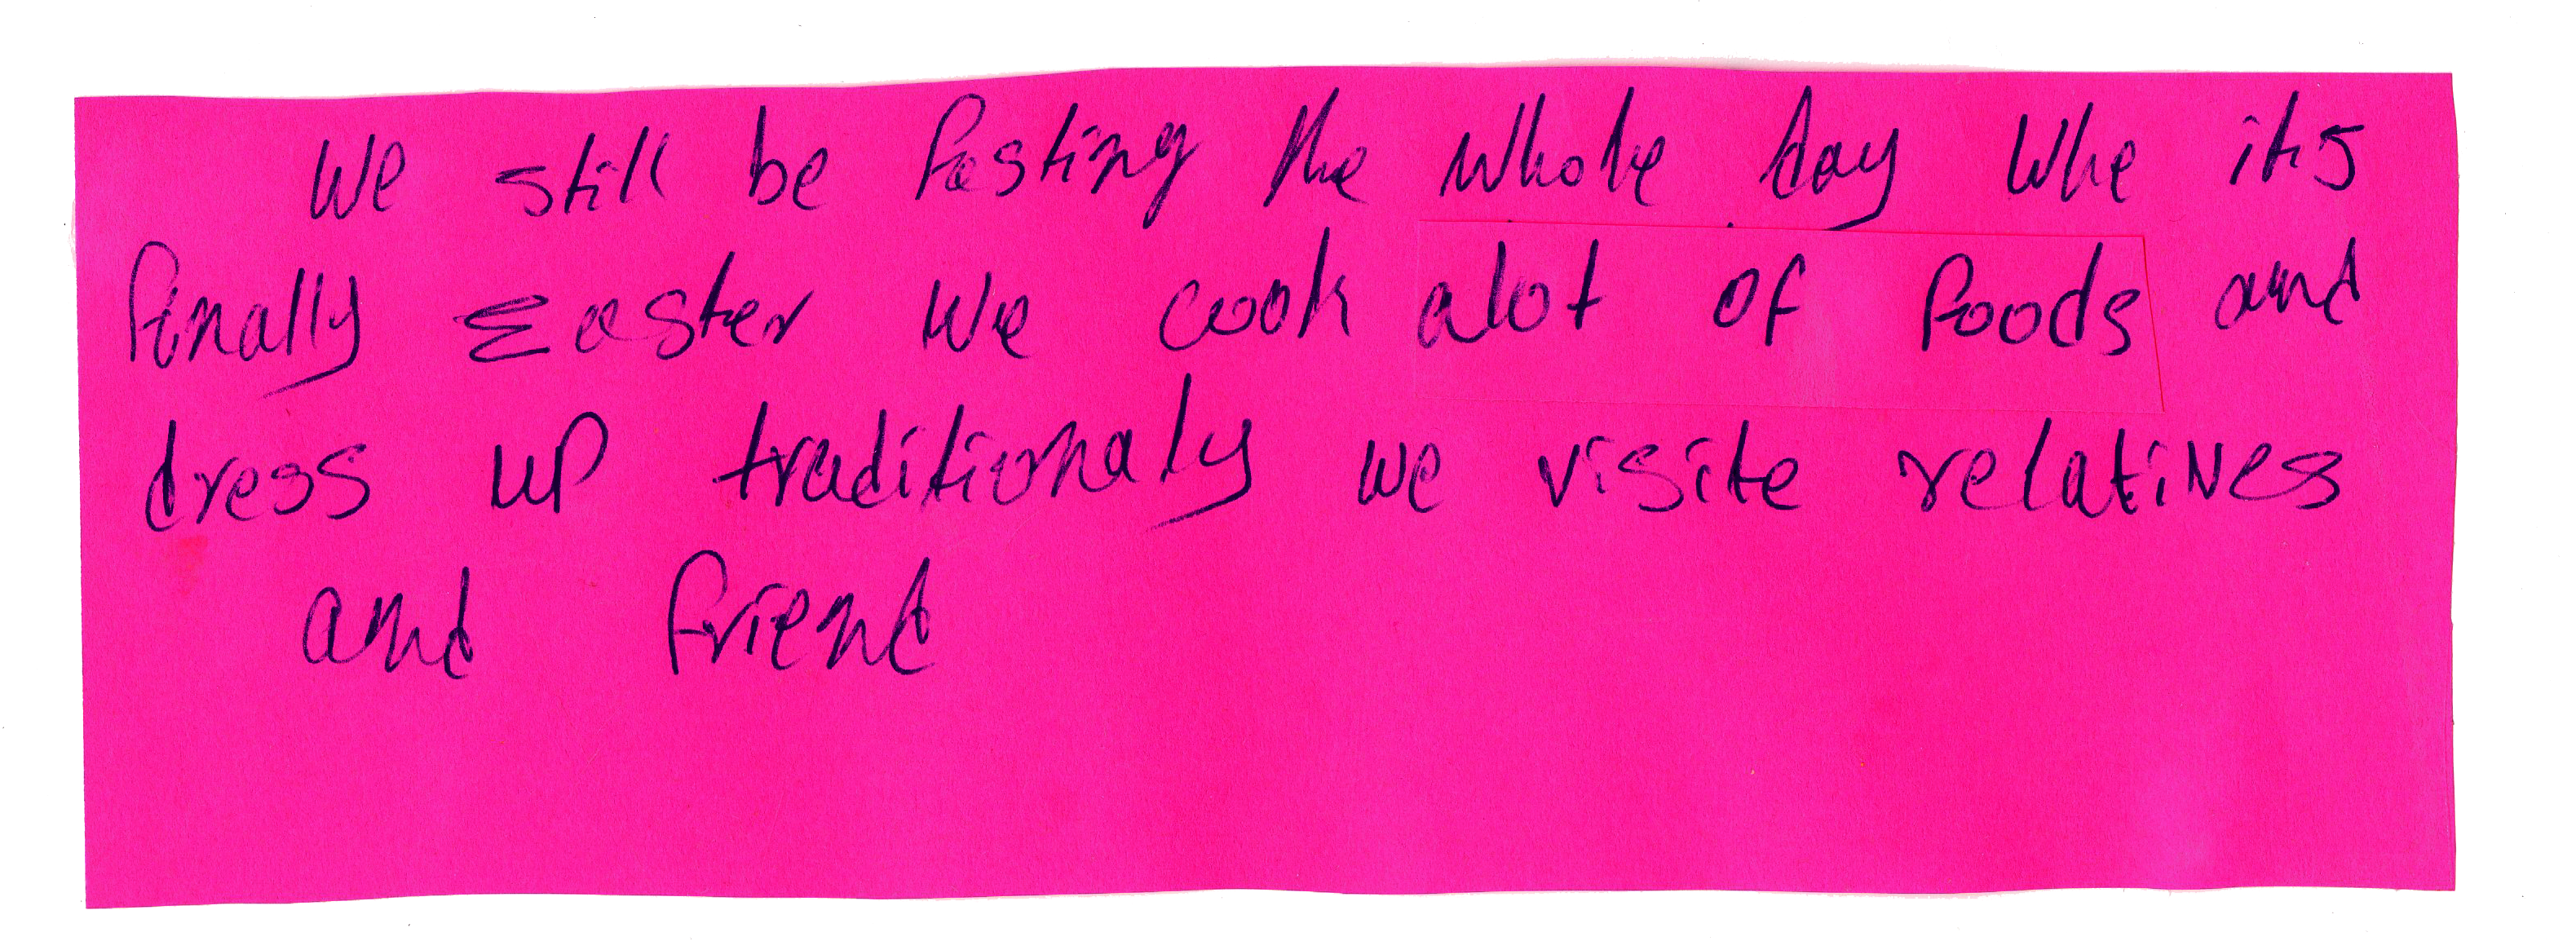 We still be fasting the whole day Whe its
finally Easter We cook alot of foods and
dress up traditionaly we visite relatives
and friend